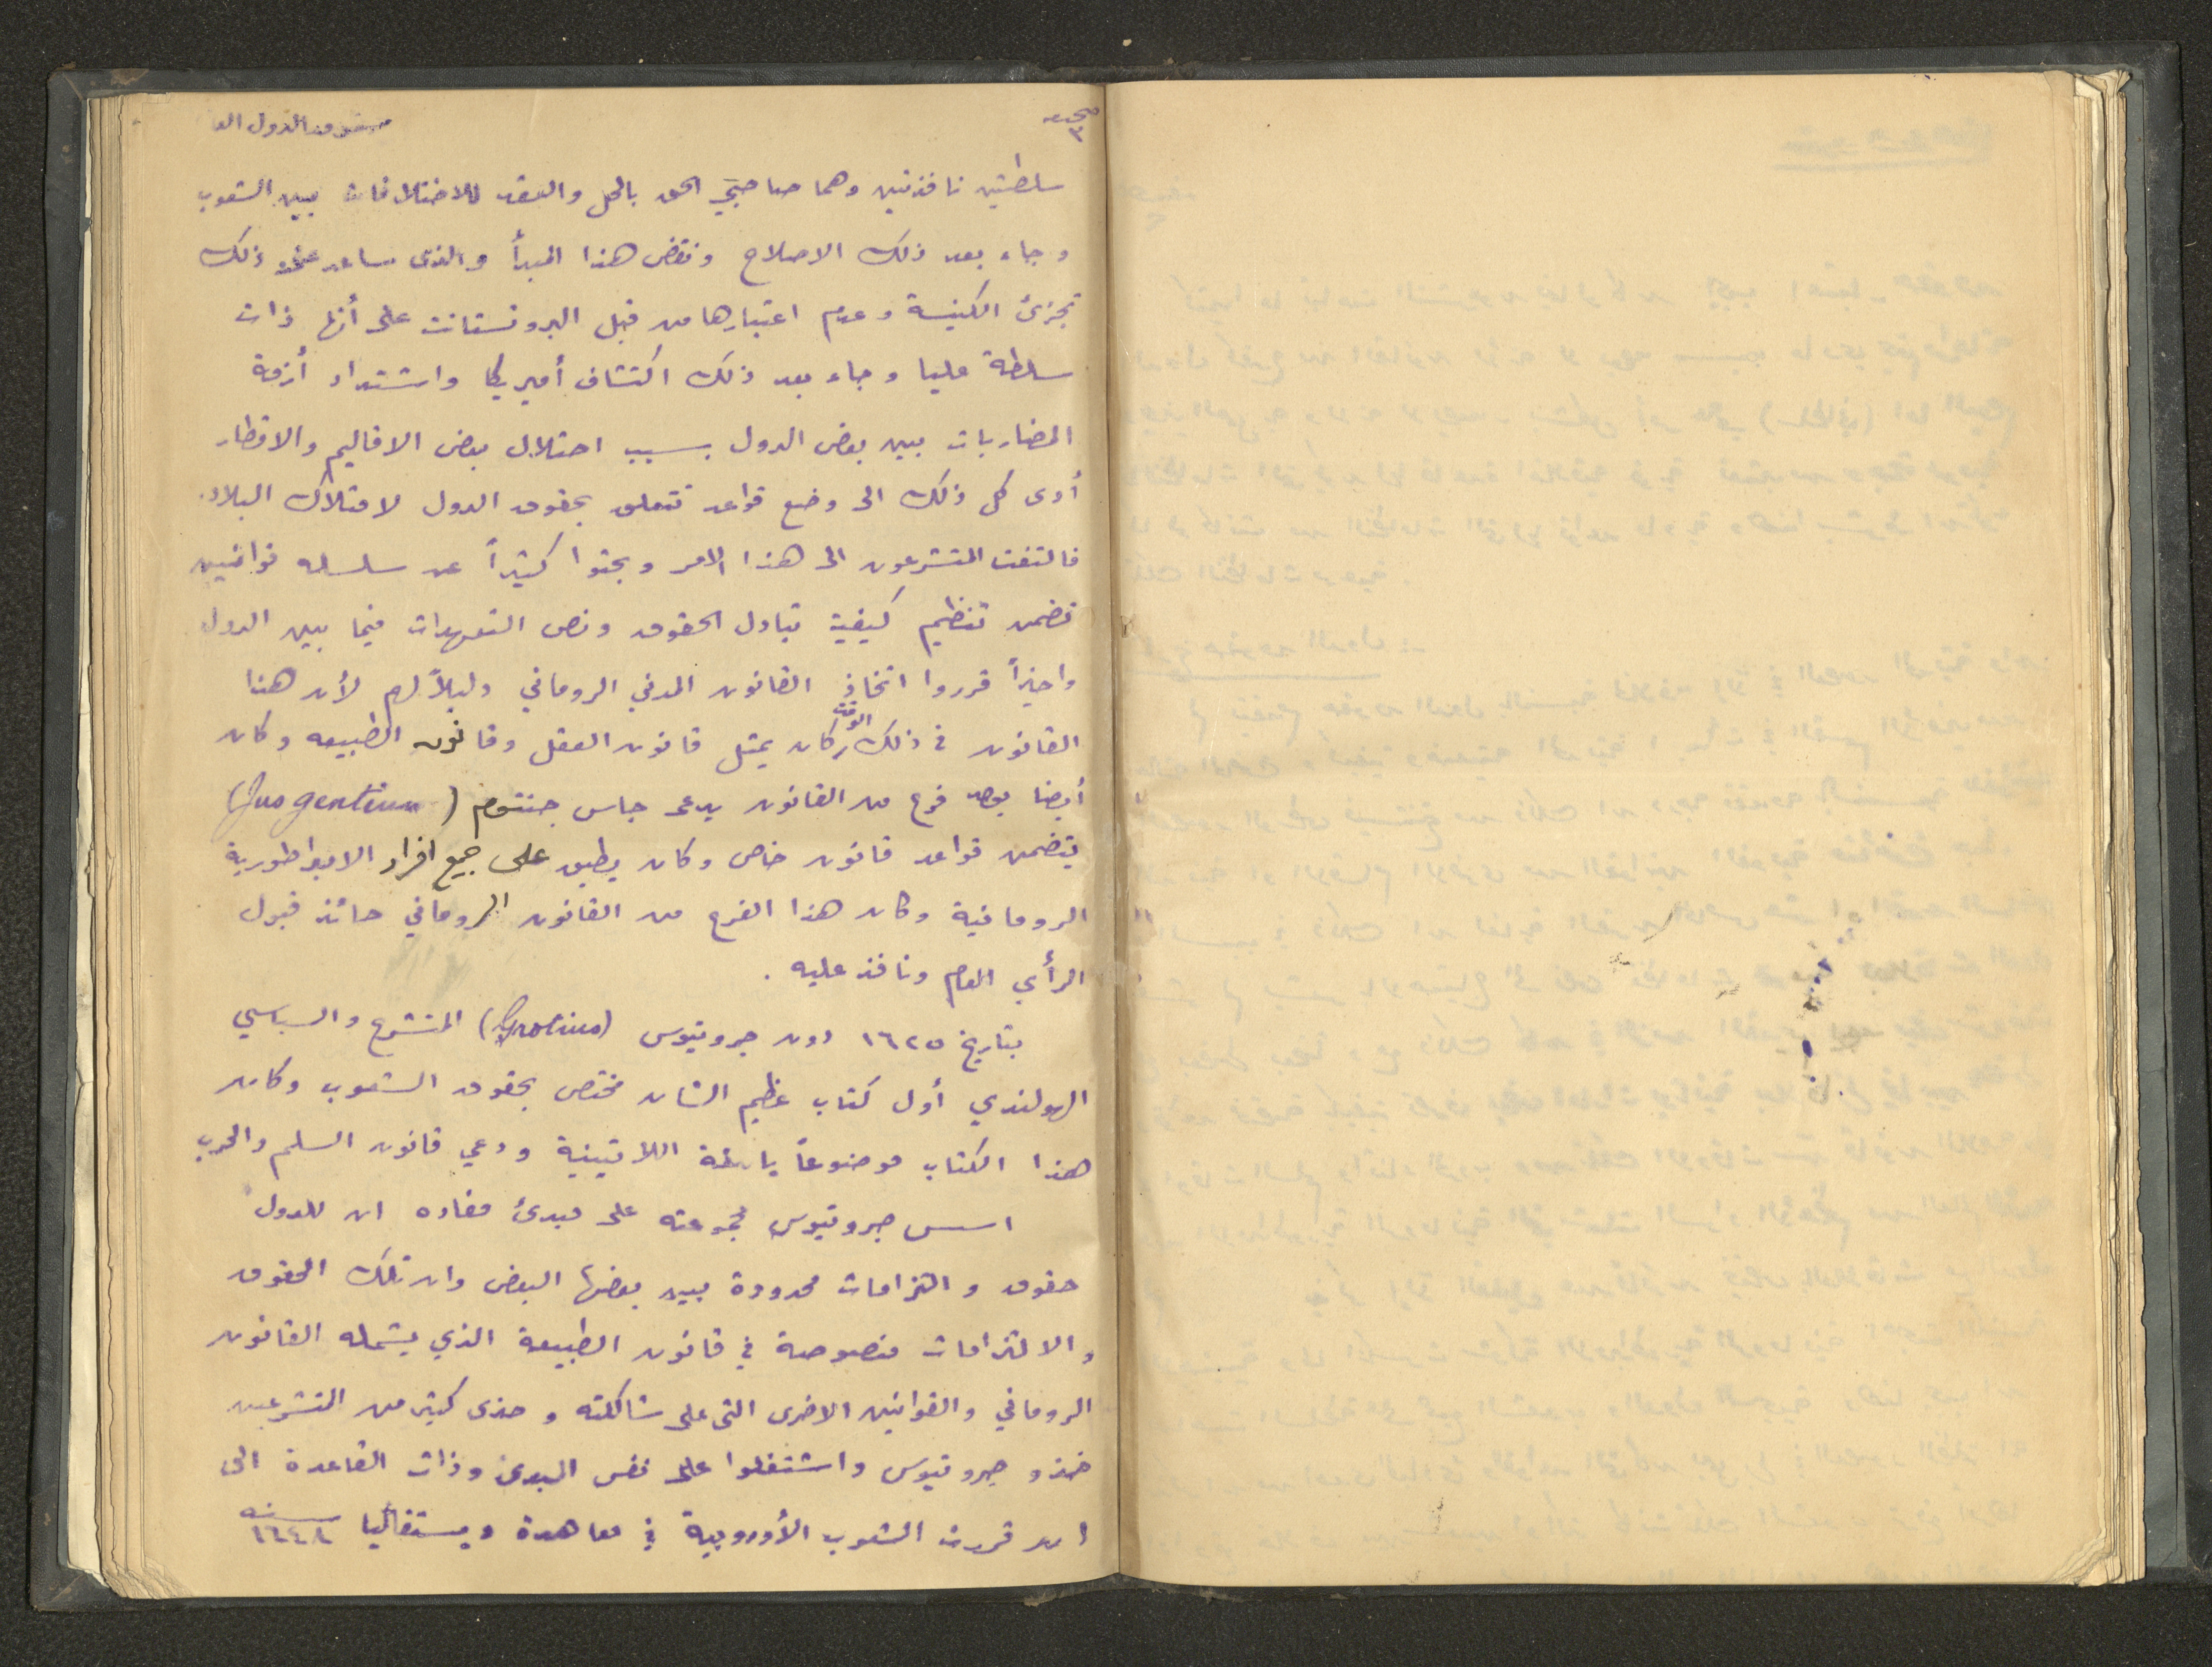 صحيفه ٣
حقوق الدول العا
سلطتين نافذتين وهما صاحبتي الحق بالحل والعقد للاختلافات بين الشعوب
وجاء بعد ذلك الاصلاح ونقض هذا المبدأ والذى ساعد على ذلك
تجزئ الكنيسة وعدم اعتبارها من قبل البروتستانت على أنها ذات
سلطة عليا وجاء بعد ذلك اكتشاف أميريكا واشتداد أزمة
المضاربات بين بعض الدول بسبب احتلال بعض الاقاليم والاقطار
أدى كل ذلك الى وضع قواعد تتعلق بحقوق الدول لامتلاك البلاد.
فالتفت المتشرعون الى هذا الامر وبحثوا كثيراً عن سلسله قوانين
تضمن تنظيم كيفية تبادل الحقوق ونص التعهدات فيما بين الدول
واخيراً قرروا اتخاذ القانون المدني الروماني دليلاً لهم لأن هذا
القانون في ذلك الوقت كان يمثل قانون العقل وقانون الطبيعه وكان
أيضا يوجد فرع من القانون يدعى جاس جنتوم (Jus gentium)
يتضمن قواعد قانون خاص وكان يطبق على جميع افراد الامبراطورية
الرومانية وكان هذا الفرع من القانون الروماني حائذ قبول
الرأي العام ونافذ عليه .
بتاريخ ١٦٢٥ دون جروتيوس (Grotius) المتشرع والسياسي
الهولندي أول كتاب عظيم الشان مختص بحقوق الشعوب وكان
هذا الكتاب موضوعاً باللغة اللاتينية ودعي قانون السلم والحرب
اسس جروتيوس مجموعته على مبدئ مفاده ان للدول
حقوق والتزامات محدودة بين بعضها البعض وان تلك الحقوق
والالتزامات منصوصة في قانون الطبيعة الذي يشمله القانون
الروماني والقوانين الاخرى التى على شاكلته وحذى كثير من المتشرعين
حذو جروتيوس واشتغلوا على نفس المبدئ وذات القاعدة الى
ان قررت الشعوب الأوروبية في معاهدة ويستفاليا سنه ١٦٤٨